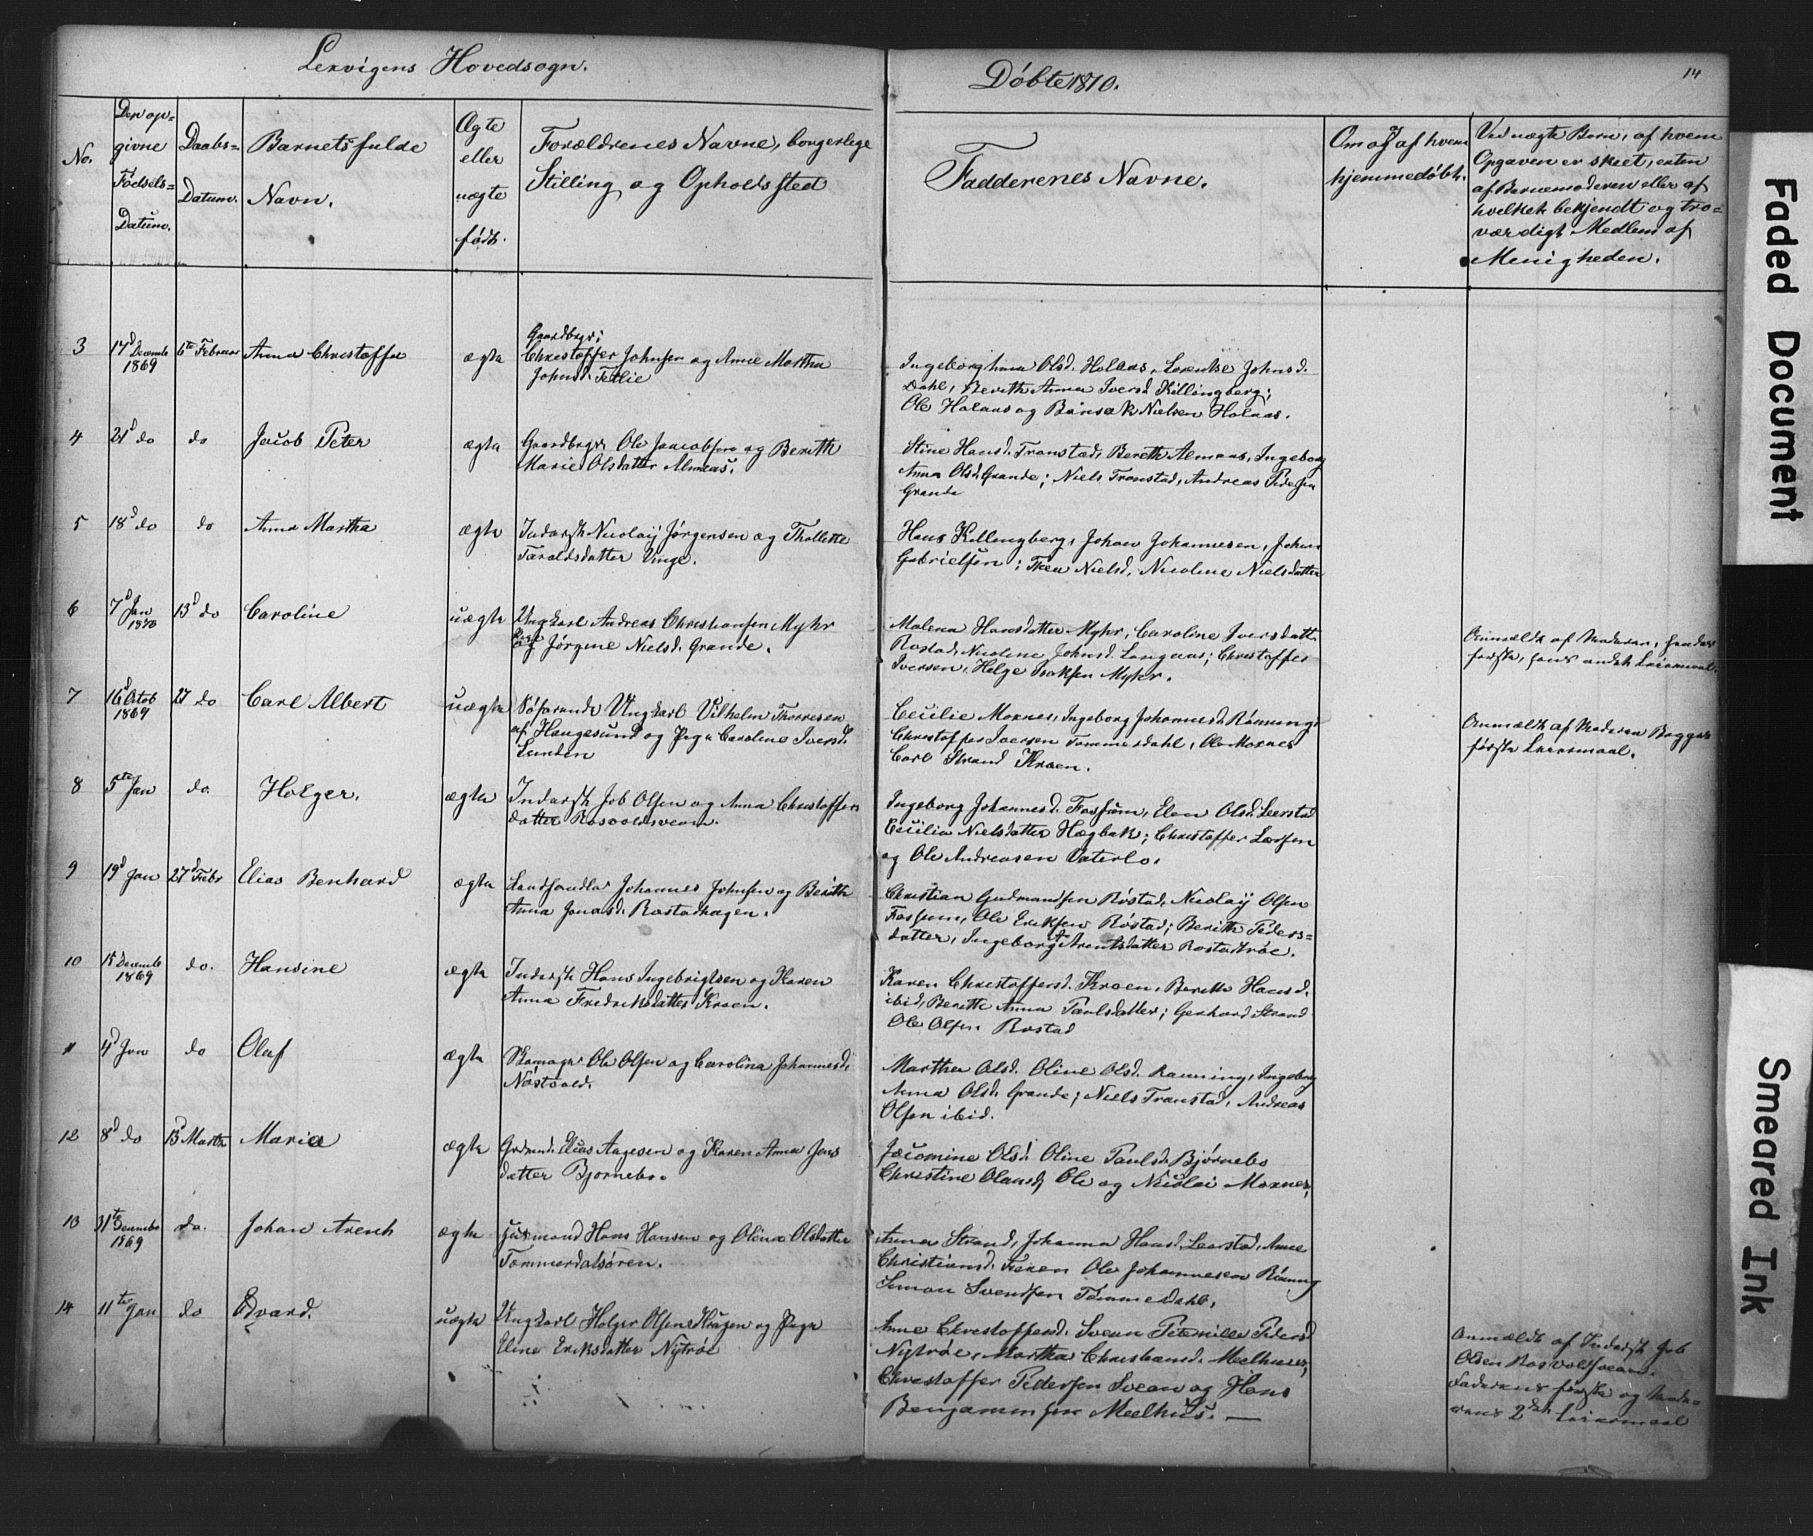 Lexvigens Hovedsogn.
Døbte 1870.
14
No.
Den op-
givne
Fødsels-
Datum.
Daabs-
Datum.
Barnets fulde
Navn.
Ægte
eller
uægte
født.
Forældrenes Navne, borgerlige
Stilling og Opholdssted
Faddernes Navne.
Om og af hvem
hjemmedøbt.
Ved uægte Børn, af hvem
Opgaven er skeet, enten
af Barnemoderen eller af
hvilket bekjendt og tro-
værdigt Medlem af
Menigheden.
3 17d Decemb 1869 6te Februar Anna Christoffa ægte
Gaardbrgr:
Christoffer Johnsen og Anne Martha
Johnsd. Tetlie
Ingeborghana Olsd. Holaas, Lorentse Johnsd.
Dahl, Berith Anna Iversd Killingberg;
Ole Holaas og Bonsak Nielsen Holaas.
4 21d do do Jacob Peter ægte
Gaardbrgr Ole Jacobsen og Berith
Marie Olsdatter Almaas.
Stine Hansd. Tronstad, Bereth Almaas, Ingeborg
Anna Olsd. Grande; Niels Tronstad, Andreas Pedersen
Grande
5 18d do do Anna Martha ægte
Inderst Nicolaij Jørgensen og Thollette
Taraldsdatter Vinge.
Hans Killingberg, Johan Johannesen, Johan
Gabrielsen; Thea Nielsd, Nicoline Nielsdatter
6 7d Jan 1870 13d do Caroline uægte
Ungkarl Andreas Christiansen Myhr
og Pige Jørgine Nielsd. Grande.
Malena Hansdatter Myhr, Caroline Iversdatt.
Rostad, Nicoline Johnsd. Langaas; Christoffer
Iversen, Helge Isaksen Myhr.
Anmeldt af Moderen, hendes
første, hans andet Leiermaal.
7 16d Octob 1869 27 do Carl Albert uægte
Søfarende Ungkarl Vilhelm Thorresen
af Haugesund og Pige Caroline Iversd.
Lunden
Cecilie Moxnes, Ingeborg Johannesd. Rønning;
Christoffer Iversen Tømmerdahl, Ole Moxnes
Carl Strand Kroen.
Anmeldt af Moderen Begges
første Leiermaal.
8 5te Jan do. Holger. ægte
Inderst Job Olsen og Anna Christoffers
datter Rosvoldsveen.
Ingeborg Johannesd. Fossum, Elen Olsd. Leerstad
Cecilia Nielsdatter Hægbak; Christoffer Larsen
og Ole Andreasen Vaterlo.
9 19d Jan 27d Febr Elias Benhard ægte
Landhandler Johannes Johnsen og Berith
Anna Jonasd. Rostadhagen.
Christian Gudmundsen Røstad, Nicolaij Olsen
Fossum, Ole Eriksen Røstad; Berith Peders-
datter, Ingeborg A Arentsdatter Rostadtrøe.
10 15 Decemb 1869 do. Hansine ægte
Inderst Hans Ingebrigtsen og Karen
Anna Fredriksdatter Kroen.
Karen Christoffersd. Kroen, Berith Hansd.
ibid, Berith Anna Paulsdatter; Gerhard Strand
Ole Olsen Rostad
11 4d Jan do Olaf ægte
Skomager Ole Olsen og Carolina Johannesd.
Nostvold.
Martha Olsd. Oline Olsd. Rønning, Ingeborg
Anna Olsd. Grande; Niels Tronstad, Andreas
Olsen ibid.
12 8d do 13d Marts Maria ægte
Grdmd. Elias Aagesen og Karen Anna Jens
datter Bjørnebo.
Jacomine Olsd. Oline Paulsd. Bjørnebo
Christine Olausd, Ole og Nicolai Moxnes,
13 31te Decemb 1869 do. Johan Arent ægte
Husmand Hans Hansen og Olina Olsdatter
Tømmerdalsøren.
Anna Strand, Johanna Hansd. Leerstad, Anne
Christiansd. Ole Johannesen Rønning
Simon Svendsen Tømmerdahl.
14 11te Jan do Edvard. uægte
Ungkarl Holger Olsen Hagen og Pige
Eline Eriksdatter Nytrøe
Anne Christoffersd. Svean Peternille Pedersd
Nytrøe, Martha Christiansd. Meelhuus,
Christoffer Pedersen Svean og Hans
Benjaminsen Meelhus. —
Anmeldt af Inderst Job
Olsen Rosvoldsveen.
Faderens første og Mode-
rens 2det Leiermaal
Faded Document
Smeared Ink